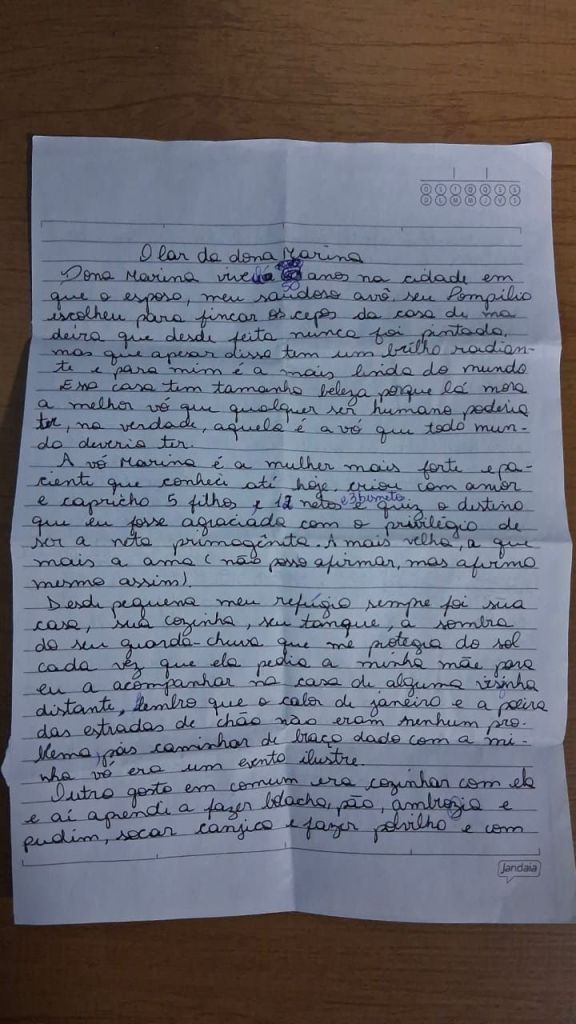 O lar da dona Marina
Dona Marina vive há 50 anos na cidade em
que o esposo, meu saudoso avô, seu Pompilio
escolheu para fincar os cepos da casa de ma
deira que desde feita nunca foi pintada,
mas que apesar disso tem um brilho radian-
te e para mim é a mais linda do mundo
Essa casa tem tamanha beleza porque lá mora
a melhor vó que qualquer ser humano poderia
ter, na verdade, aquela é a vó que todo mun-
do deveria ter.
A vó Marina é a mulher mais forte e pa-
ciente que conheci até hoje, criou com amor
e capricho 5 filhos e 12 netos e 3 bisnetos e quiz o destino
que eu fosse agraciada com o privilégio de
ser a neta primogênita. A mais velha, a que
mais a ama (não posso afirmar, mas afirmo
mesmo assim).
Desde pequena meu refúgio sempre foi sua
casa, sua cozinha, seu tanque, a sombra
do seu guarda-chuva que me protegia do sol
cada vez que ela pedia a minha mãe para
eu a acompanhar na casa de alguma vizinha
distante, lembro que o calor de janeiro e a poeira
das estradas de chão não eram nenhum pro-
blema, pois caminhar de braço dado com a mi-
nha vó era um evento ilustre.
Outro gosto em comum era cozinhar com ela
e aí aprendi a fazer bolacha, pão, ambrozia e
pudim, socar canjica e fazer polvilho e com
jandaia